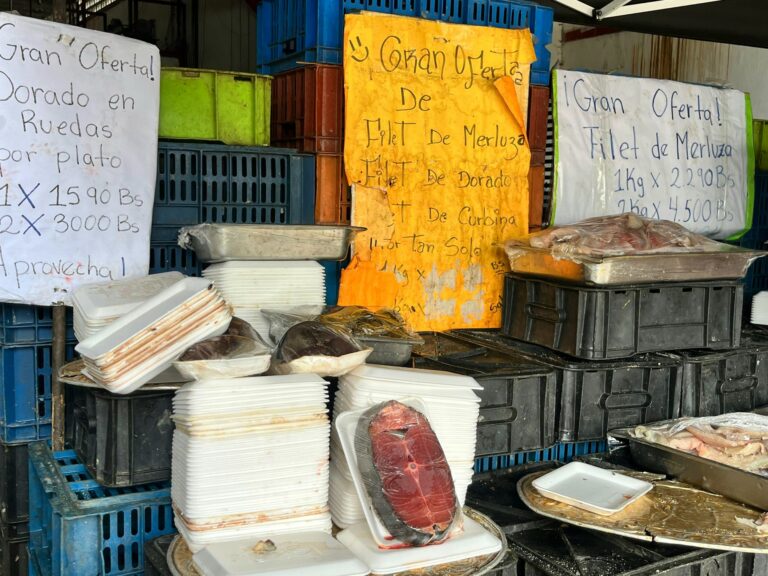 Gran Oferta!
Dorado en
Ruedas
por plato
1 X 1590 Bs
2 X 3000 Bs
Aprovecha!
Gran Oferta
De
Filet De Merluza
Filet De Dorado
De Corbina
Por Tan Solo
1Kg x
¡Gran Oferta!
Filet de Merluza
1Kg x 2.290 Bs
2Kg x 4.500 Bs